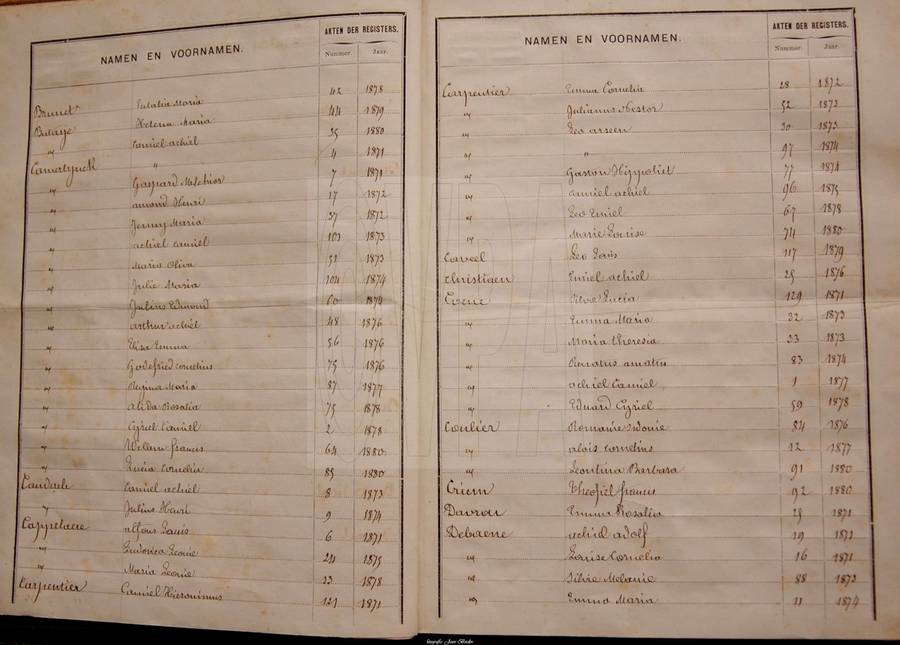 NAMEN EN VOORNAMEN. AKTEN DER REGISTERS.
Nummer Jaar
Brunet Eulalia Maria 42 1878
Butaye Helena Maria 44 1879
" Camiel achiel 35 1880
Camerlynck " 4 1871
" Gaspard Melchior 7 1871
" amond Henri 17 1872
" Jenny Maria 37 1872
" achiel Camiel 101 1873
" Maria Oliva 51 1873
" Julie Maria 104 1874
" Julius Edmond 60 1874
" arthur achiel 48 1876
" Elisa Emma 56 1876
" Godefried Cornelius 75 1876
" Regina Maria 87 1877
" alida Rosalia 75 1878
" Cyriel Camiel 2 1878
" Willem francis 64 1880
" Lucia Cornelia 85 1880
Candaele Camiel achiel 8 1873
" Julius Henri 9 1874
Cappelaere alfons Louis 6 1871
" Ludovica Leonie 24 1875
" Maria Leonie 23 1878
Carpentier Camiel Hieronimus 121 1871
NAMEN EN VOORNAMEN. AKTEN DER REGISTERS.
Nummer. Jaar.
Carpentier Emma Cornelia 28 1872
" Julianus Nestor 52 1873
" Leo arseen 30 1873
" " 97 1874
" Gaston Hippoliet 77 1874
" Camiel achiel 96 1875
" Leo Emiel 67 1878
" Marie Louise 74 1880
Caveel Leo Louis 117 1879
Christiaen Emiel achiel 25 1876
Coene Silvie Lucia 129 1871
" Emma Maria 32 1873
" Maria Theresia 33 1873
" Renatus amatus 83 1874
" achiel Camiel 1 1877
" Eduard Cyriel 59 1878
Coulier Romanie Sidonie 84 1876
" alois Cornelius 12 1877
" Leontina Barbara 91 1880
Criem Theofiel francis 92 1880
Davrou Emma Rosalia 25 1871
Debaene achiel adolf 19 1871
" Louise Cornelia 16 1871
" Silvie Melanie 88 1873
" Emma Maria 11 1874